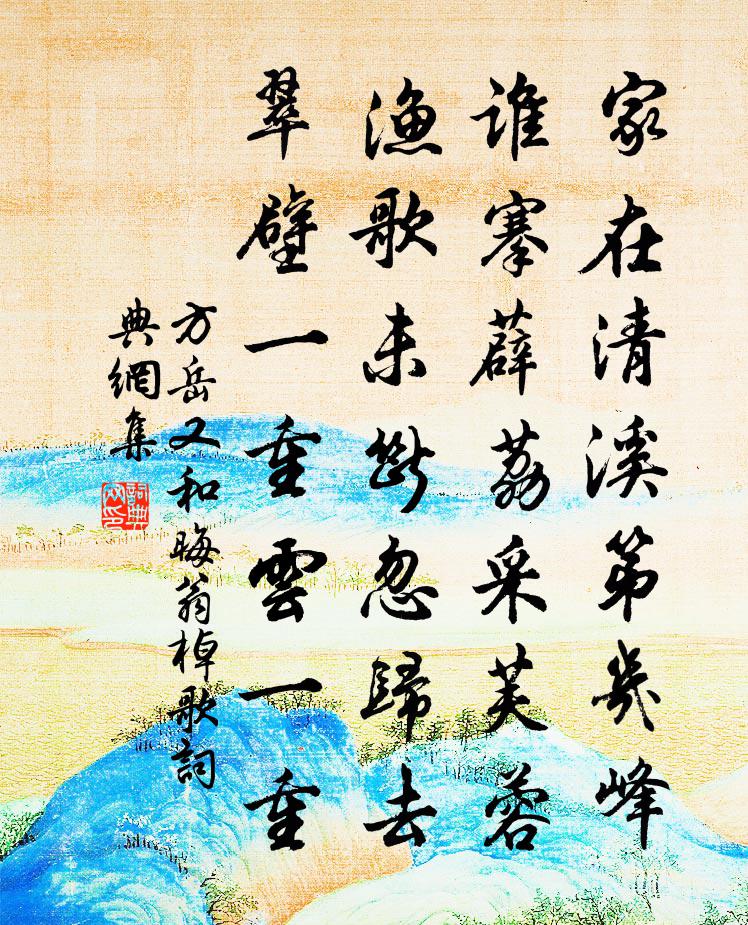 家在清溪第幾峰
誰搴薜荔采芙蓉
漁歌未斷忽歸去
翠壁一重雲一重
方岳又和晦翁棹歌詞
典網集
詞典網印